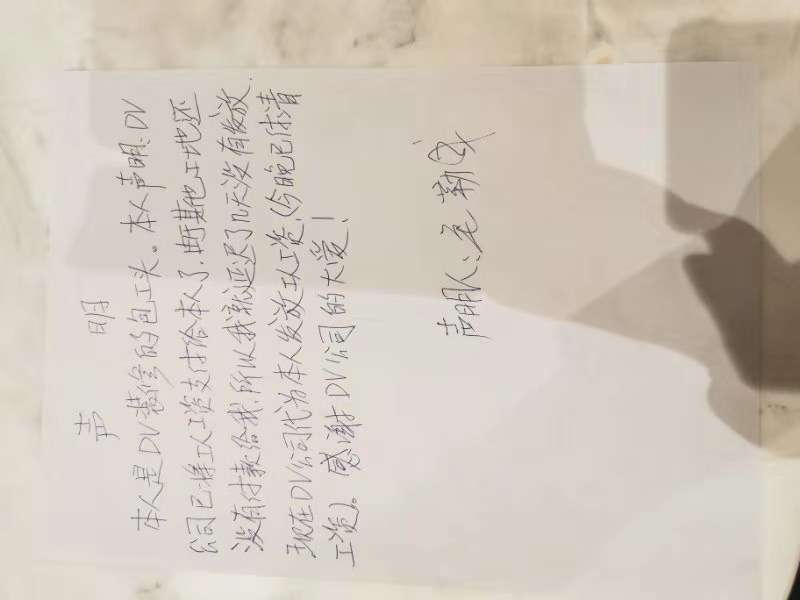 声 明
本人是DV装修的包工头。本人声明:DV
公司已将工人工资支付给本人了,其他工地还
没有付款给我,所以我就延迟了几天没有发放.
现在DV公司代为本人发放工人工资,(今晚已付清
工资)。感谢DV公司的大爱!
声明人: